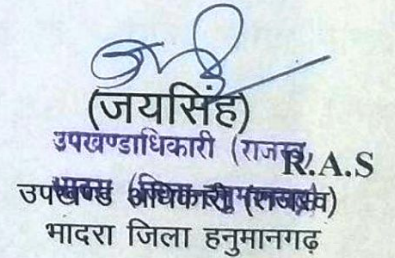 (जयसिंह)
उपखण्डाधिकारी (राजस्व)
R.A.S
उपखण्ड अधिकारी (राजस्व)
भादरा जिला हनुमानगढ़